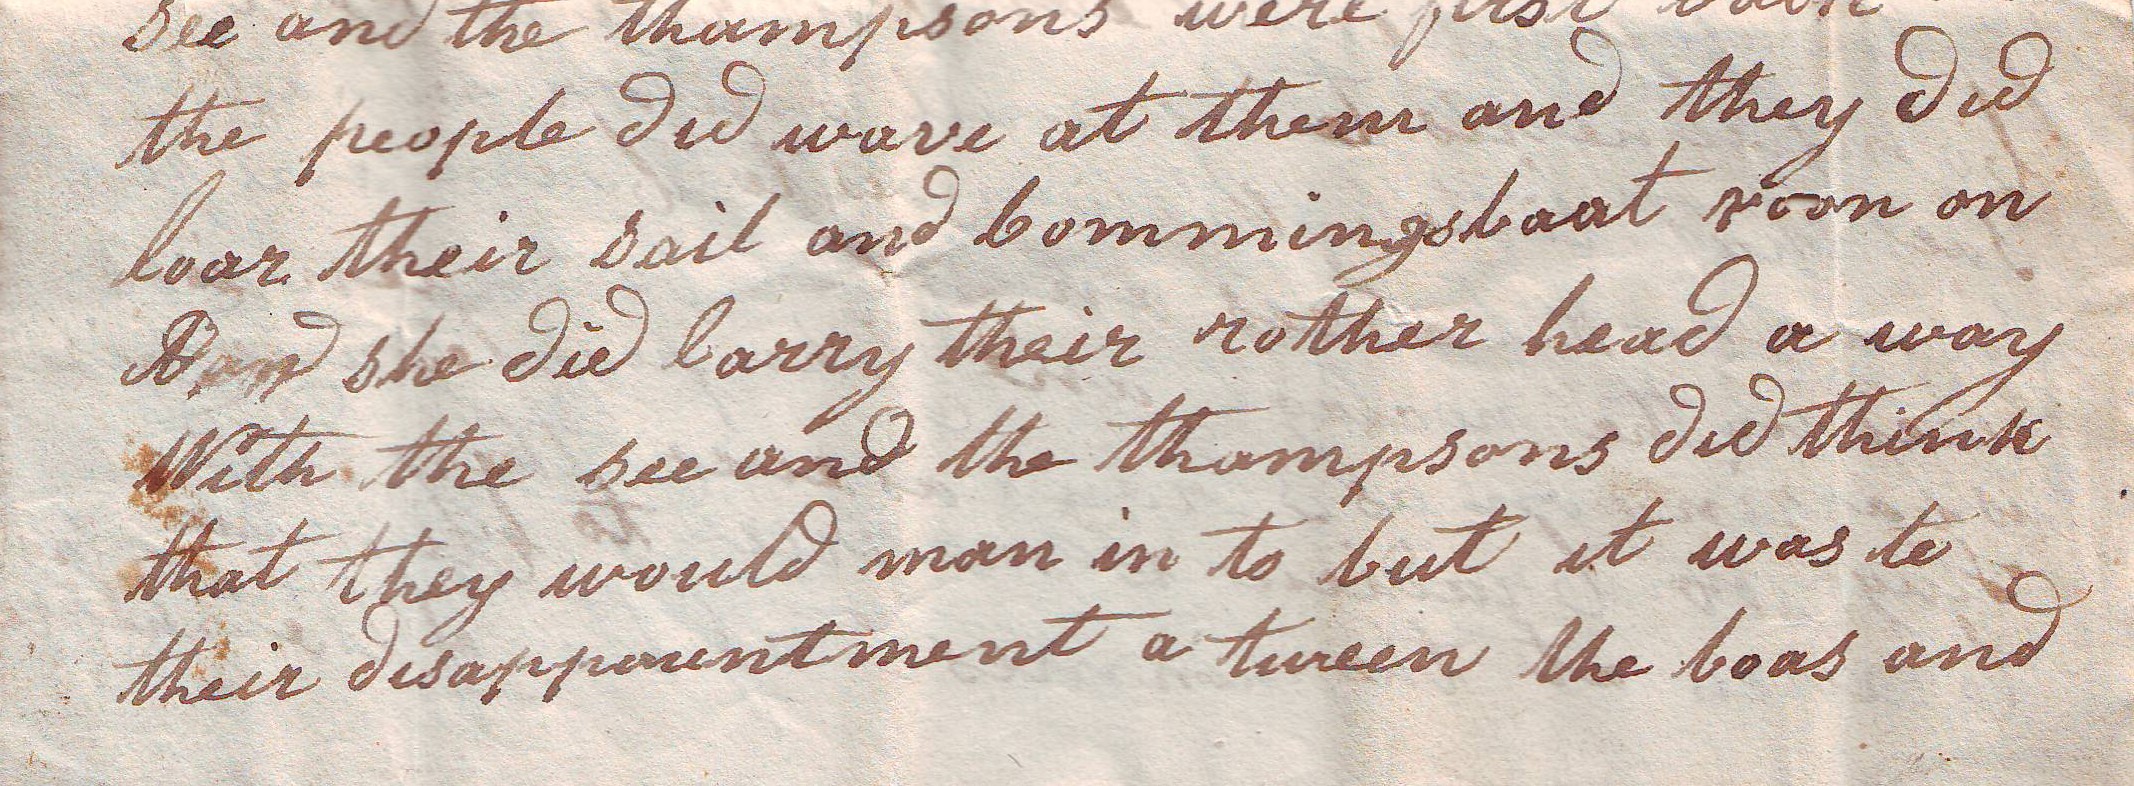 see and the thampsons were first back
the people did wave at them and they did
loar their sail and bommingsbaat roon on
And she did carry their rother head a way
With the see and the thampsons did think
that they would man in to but it was to
their disappountment a tween the boas and